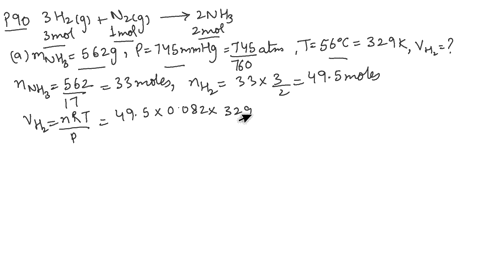 P90 3H₂(g) + N₂(g) ⟶ 2NH₃
3mol 1mol 2mol
(a) m_NH₃ = 562g, P = 745mmHg = 745/760 atm, T = 56°C = 329K, V_H₂ = ?
n_NH₃ = 562/17 = 33 moles, n_H₂ = 33 × 3/2 = 49.5 moles
V_H₂ = nRT/P = 49.5 × 0.082 × 329